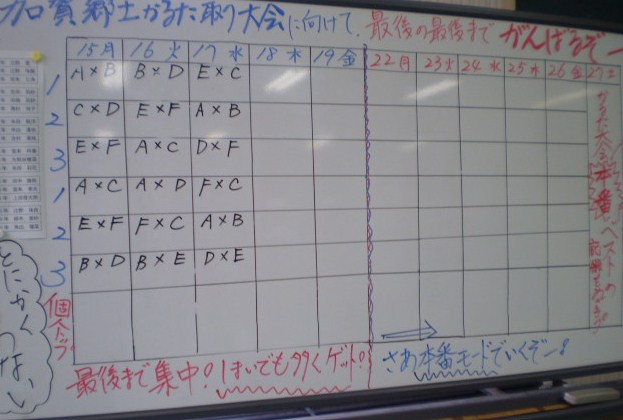 加賀郷土かるた取り大会に向けて、最後の最後までがんばるぞー
15月 16火 17水 18木 19金 22月 23火 24水 25木 26金 27土
1 A×B B×D E×C
2 C×D E×F A×B
3 E×F A×C D×F
1 A×C A×D F×C
2 E×F F×C A×B
3 B×D B×E D×E
個人トップ
かるた大会本番
ベストの
とにかく
ない
最後まで集中!1まいでも多くゲット!
さあ本番モードでいくぞー!